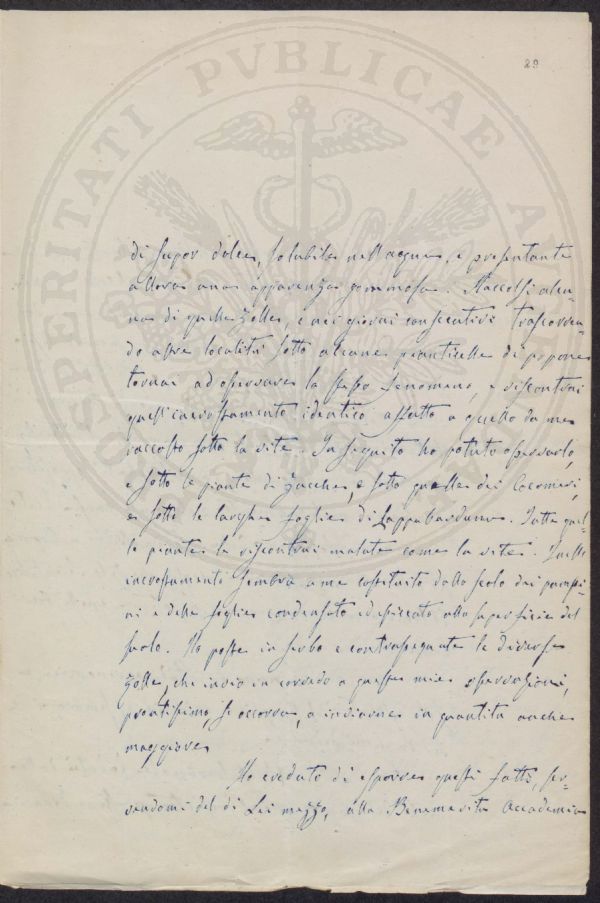 PROSPERITATI PVBLICAE AVGENDAE
29
di sapor dolce, solubile nell'acqua, e presentante
allora una apparenza gommosa. Raccolsi alcu-
ne di quelle zolle, e nei giorni consecutivi trascorren-
do altre località sotto alcune pianticelle di popone
tornai ad osservare lo stesso fenomeno, e riscontrai
quell'incrostamento identico affatto a quello da me
raccolto sotto la vite. In seguito ho potuto osservarlo,
e sotto le piante di zucche, e sotto quelle dei Cocomeri,
e sotto le larghe foglie di Lappa bardana. Tutte quel-
le piante le riscontrai malate come la vite. Quello
incrostamento sembra a me costituito dallo scolo dei pampi-
ni e delle foglie condensato ed essiccato alla superficie del
suolo. Ho poste in serbo e contrassegnate le diverse
zolle, che invio in corredo a queste mie osservazioni,
prontissimo, se occorra, a inviarne in quantità anche
maggiore
Ho creduto di esporre questi fatti, ser-
vendomi del di Lei mezzo, alla Benemerita Accademia